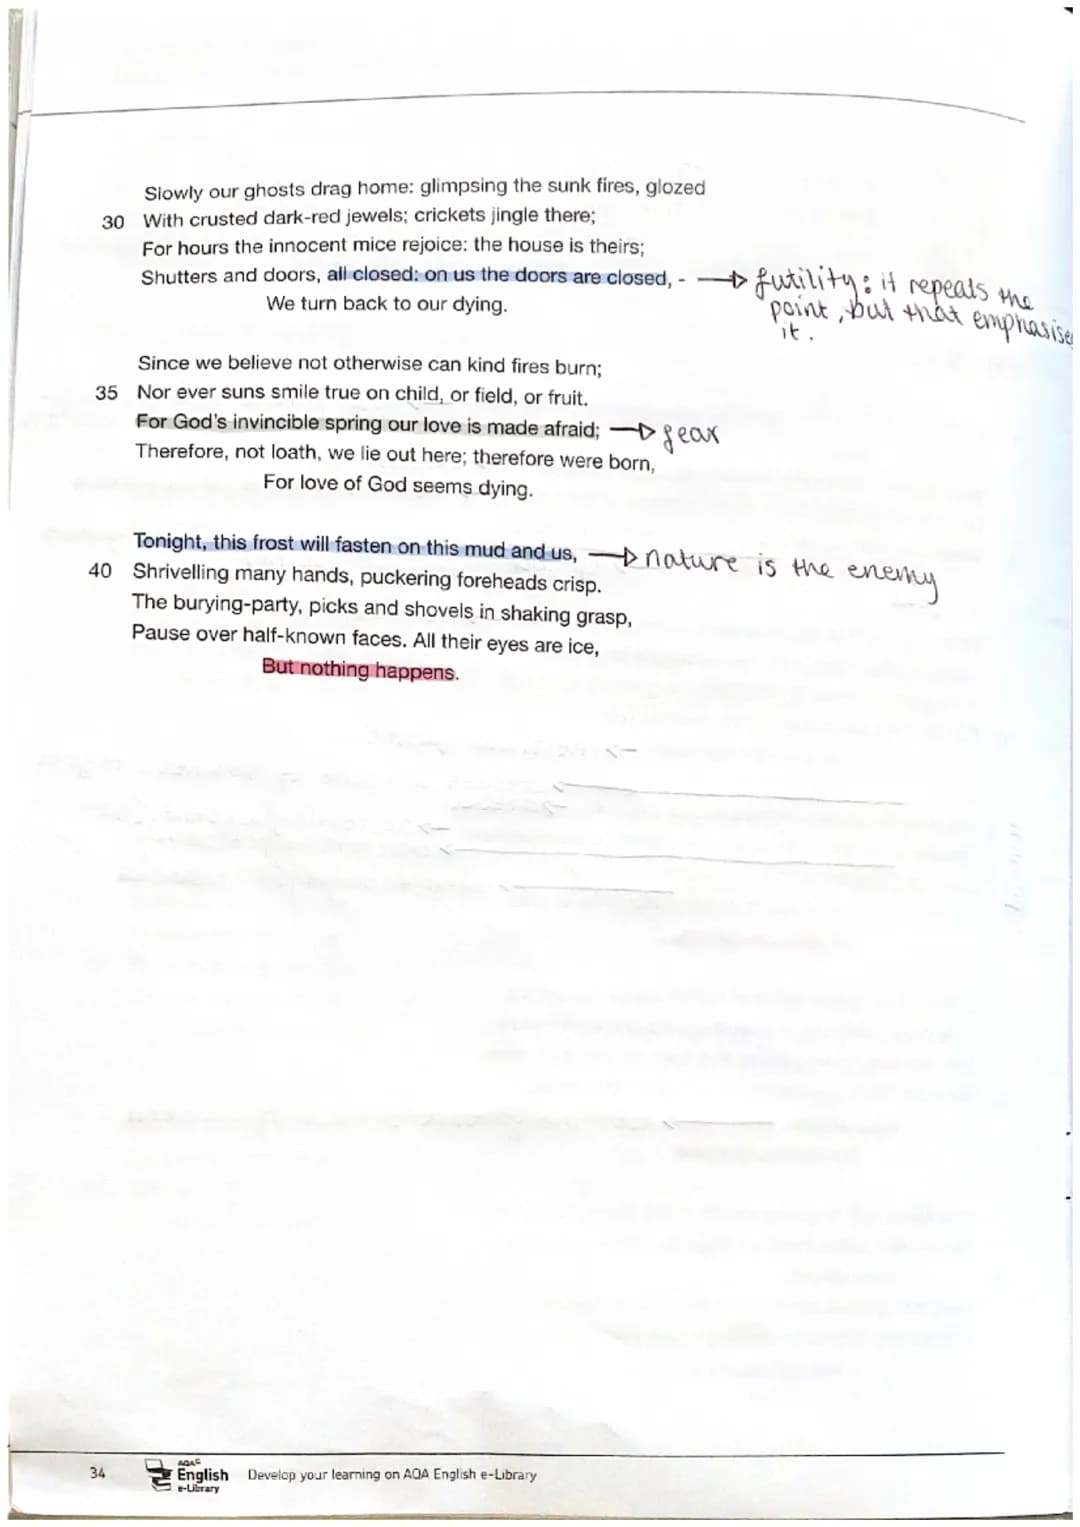 Slowly our ghosts drag home: glimpsing the sunk fires, glozed
30 With crusted dark-red jewels; crickets jingle there;
For hours the innocent mice rejoice: the house is theirs;
Shutters and doors, all closed: on us the doors are closed, - → futility: it repeals the
point, but that emphasises
it.
We turn back to our dying.
Since we believe not otherwise can kind fires burn;
35 Nor ever suns smile true on child, or field, or fruit.
For God's invincible spring our love is made afraid; → fear
Therefore, not loath, we lie out here; therefore were born,
For love of God seems dying.
Tonight, this frost will fasten on this mud and us, → nature is the enemy
40 Shrivelling many hands, puckering foreheads crisp.
The burying-party, picks and shovels in shaking grasp,
Pause over half-known faces. All their eyes are ice,
But nothing happens.
34 AQA English e-Library Develop your learning on AQA English e-Library